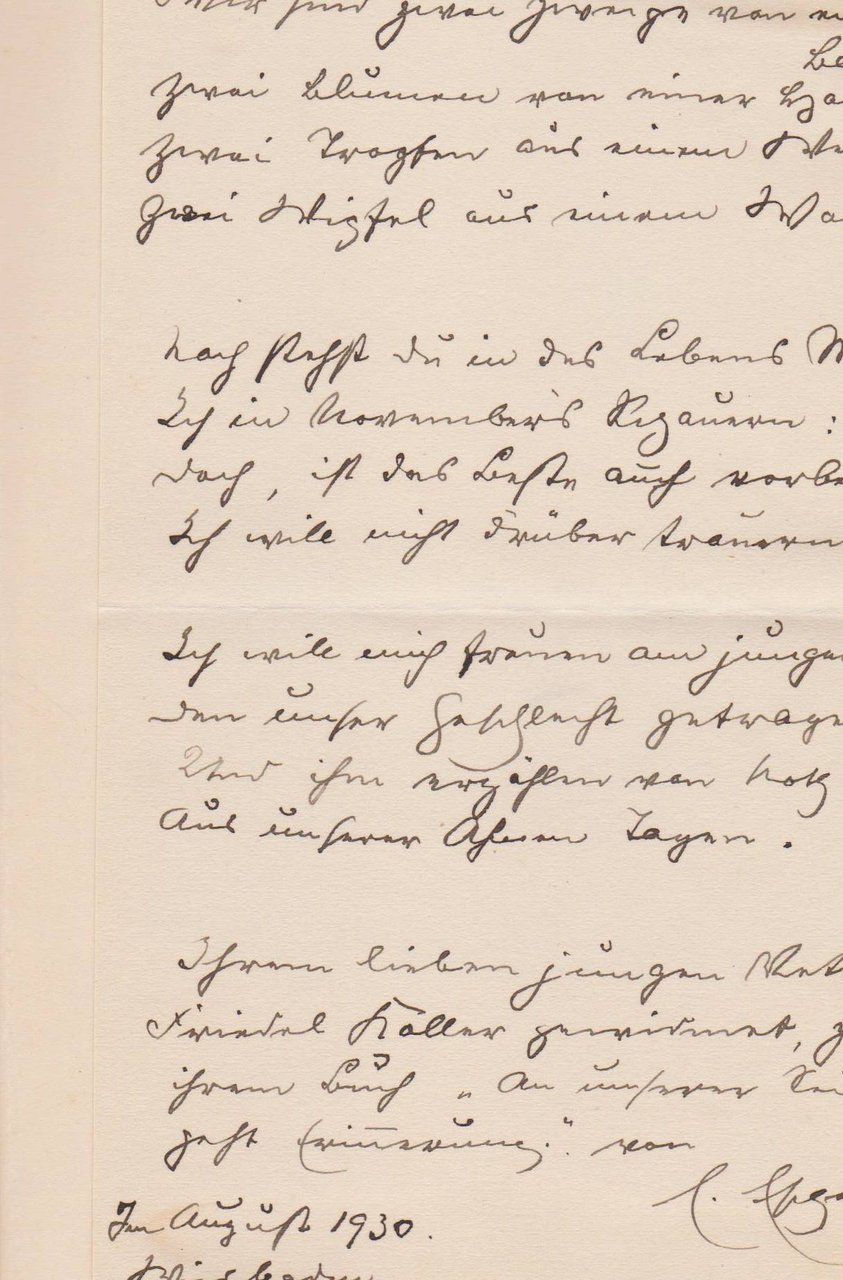 Wir sind zwei Zweige von ei
Zwei Blumen von einer
Zwei Tropfen aus einem We
Zwei Wipfel aus einem Wa
Noch stehst du in des Lebens M
Ich in November's Schauern:
Doch, ist das Beste auch vorbe
Ich will nicht drüber trauern
Ich will mich freuen am jungen
Den unser Geschlecht getrage
Und ihm erzählen von
Aus unserer Ahnen Tagen.
Ihrem lieben jungen Vet
Friedel Koller gewidmet, z
ihrem Buch „An unserer Sei
geht Erinnerung." von
Im August 1930.
Wiesbaden